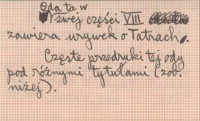 Oda ta w
swej części VIII
zawiera urywek o Tatrach.
Częste przedruki tej ody
pod różnymi tytułami (zob.
niżej).